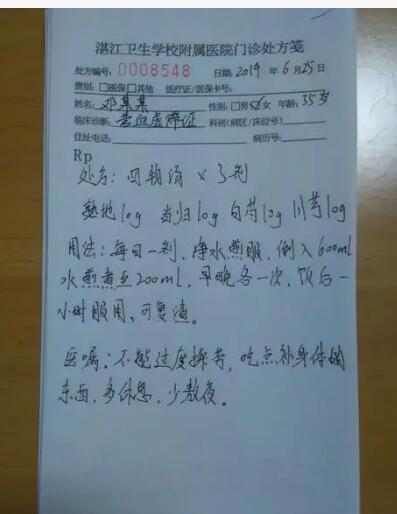 湛江卫生学校附属医院门诊处方笺
处方编号: 0008548 日期: 2019 年 6 月 25 日
费别: □医保□其他 医疗证/医保卡号:
姓名: 邓某某 性别: □男☑女 年龄: 35岁
临床诊断: 营血虚滞证 科别(病区/床位号)
住址电话: 病历号:
Rp
处方: 四物汤 × 3剂
熟地10g 当归10g 白芍10g 川芎10g
用法: 每日一剂, 净水煎服, 倒入600ml
水煎煮至200ml, 早晚各一次, 饭后一
小时服用, 可复渣。
医嘱: 不能过度操劳, 吃点补身体的
东西, 多休息, 少熬夜。